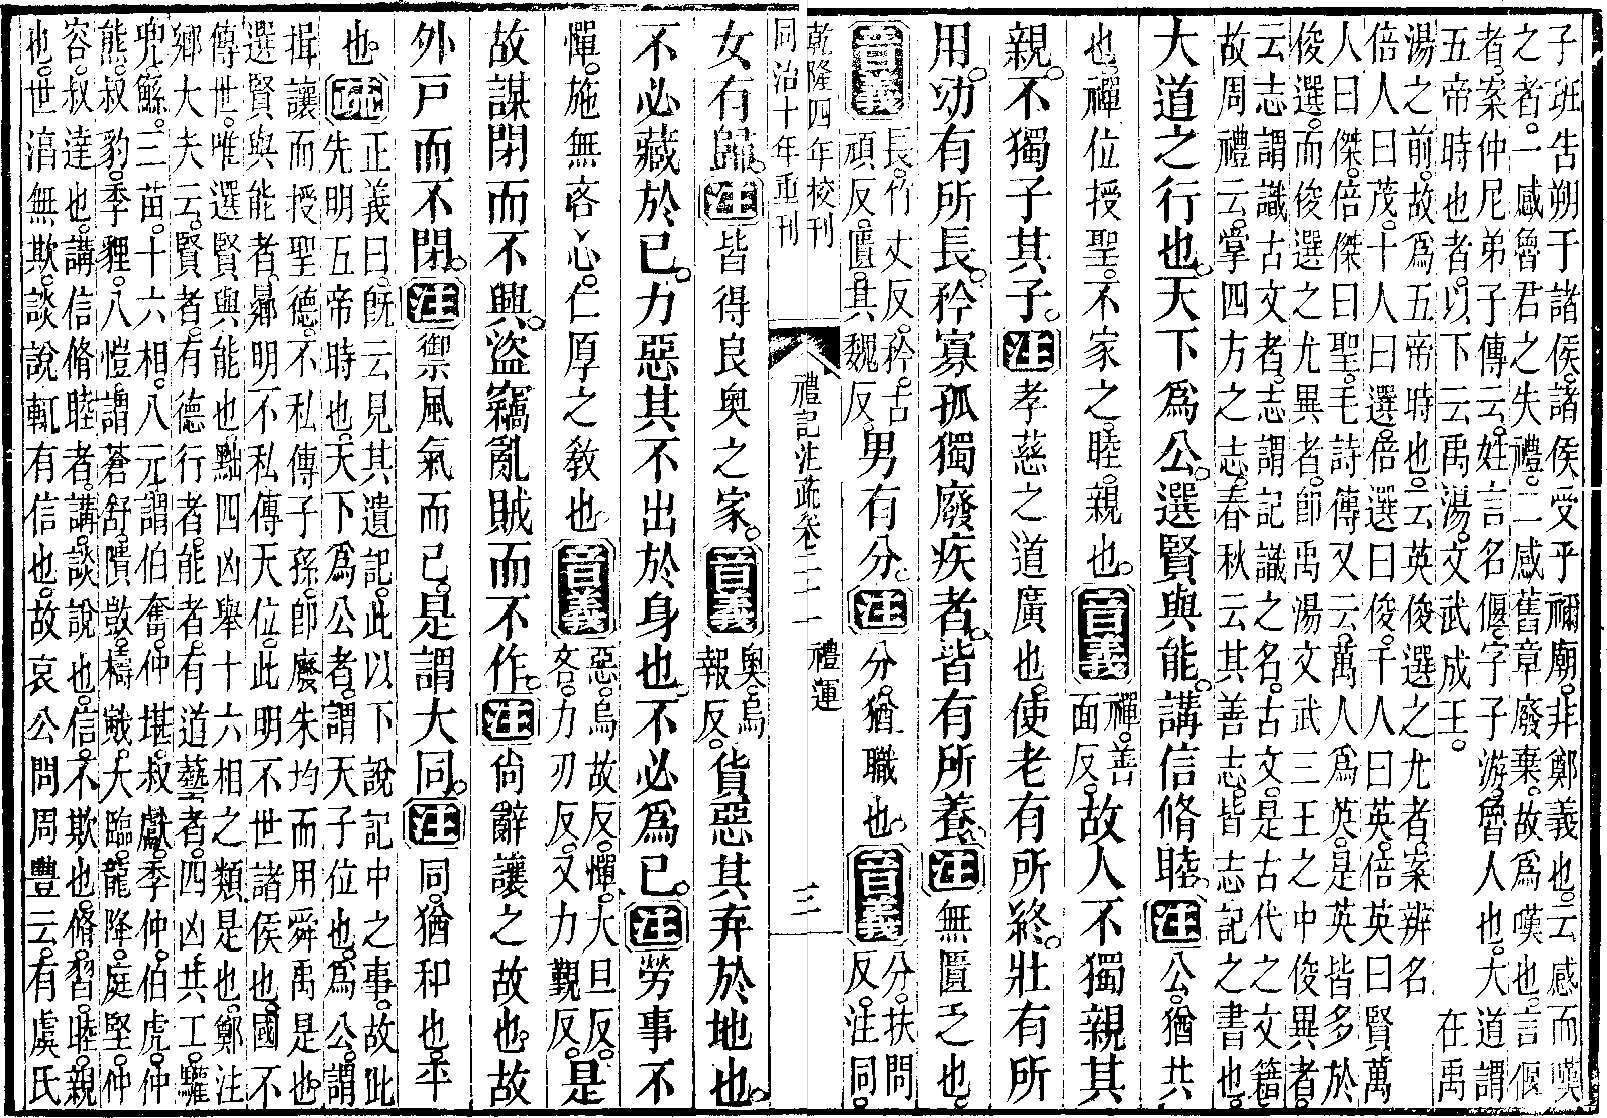 子班告朔于諸侯。諸侯受乎禰廟。非鄭義也。云感而嘆
之者。一感魯君之失禮。二感舊章廢棄。故爲嘆也。言偃
者。案仲尼弟子傳云。姓言名偃。字子游。魯人也。大道謂
五帝時也者。以下云禹湯文武成王。　在禹
湯之前。故爲五帝時也。云英俊選之尤者。案辨名
倍人曰茂。十人曰選。倍選曰俊。千人曰英。倍英曰賢。萬
人曰傑。倍傑曰聖。毛詩傳又云。萬人爲英。是英皆多於
俊選。而俊選之尤異者。卽禹湯文武三王之中俊異者。
云志謂識古文者。志謂記識之名。古文。是古代之文籍。
故周禮云。掌四方之志。春秋云。其善志。皆志記之書也。
大道之行也。天下爲公。選賢與能。講信脩睦。注公。猶共
也。禪位授聖。不家之。睦。親也。音義禪。善面反。故人不獨親其
親。不獨子其子。注孝慈之道廣也。使老有所終。壯有所
用。幼有所長。矜寡孤獨廢疾者。皆有所養。注無匱乏也。
音義長。竹丈反。矜。古頑反。匱。其魏反。男有分。注分。猶職也。音義分。扶問反。注同。
乾隆四年校刊
同治十年重刊
禮記注疏卷二十一
禮運
三
女有歸。注皆得良奧之家。音義奧。烏報反。貨惡其弃於地也。
不必藏於己。力惡其不出於身也。不必爲己。注勞事不
憚。施無吝心。仁厚之敎也。音義惡。烏故反。憚。大旦反。吝。力刃反。又力覲反。是
故謀閉而不興。盜竊亂賊而不作。注尙辭讓之故也。故
外戶而不閉。注禦風氣而已。是謂大同。注同。猶和也。平
也。疏正義曰。既云見其遺記。此以下說記中之事。故此
先明五帝時也。天下爲公者。謂天子位也。爲公。謂
揖讓而授聖德。不私傳子孫。卽廢朱均而用舜禹是也。
選賢與能者。曏明不私傳天位。此明不世諸侯也。國不
傳世。唯選賢與能也。黜四凶舉十六相之類是也。鄭注
鄉大夫云。賢者。有德行者。能者。有道藝者。四凶。共工。驩
兜。鯀。三苗。十六相。八元。謂伯奮。仲堪。叔獻。季仲。伯虎。仲
熊。叔豹。季貍。八愷。謂蒼舒。隤敳。檮戭。大臨。龍降。庭堅。仲
容。叔達也。講信脩睦者。講。談說也。信。不欺也。脩。習。睦。親
也。世淳無欺。談說輒有信也。故哀公問周豐云。有虞氏